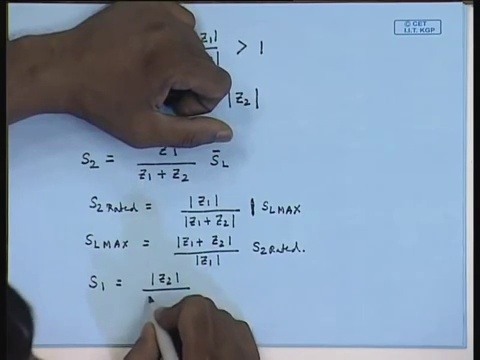 © CET
I.I.T. KGP
|Z1| > 1
|Z2|
S2 = Z1 / Z1 + Z2 S̄L
S2 Rated = |Z1| / |Z1 + Z2| | SLMAX
SLMAX = |Z1 + Z2| / |Z1| S2 Rated.
S1 = |Z2|